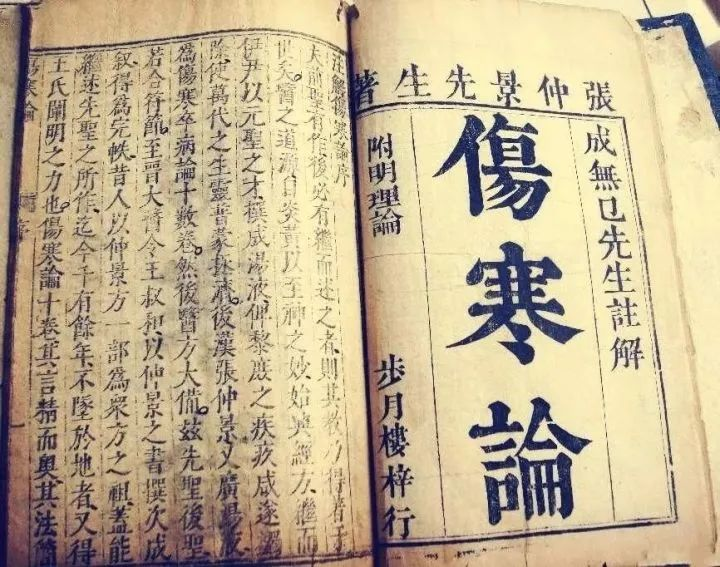 張仲景先生著
成無已先生註解
傷寒論
附明理論
步月樓梓行
注解傷寒論序
夫前聖有作後必有繼而述之者則其教乃得著于
世矣。醫之道源自炎黃以至神之妙始興經方。繼而
伊尹以元聖之才撰成湯液俾黎庶之疾疚咸遂蠲
除使萬代之生靈普蒙拯濟。後漢張仲景又廣湯液
為傷寒卒病論十數卷。然後醫方大備。茲先聖後聖
若合符節。至晉大醫令王叔和以仲景之書撰次成
敘得為完帙昔人以仲景方一部為眾方之祖蓋能
繼述先聖之所作。迄今千有餘年。不墜於地者。又得
王氏闡明之力也。傷寒論十卷其言精而奧其法簡
傷寒論